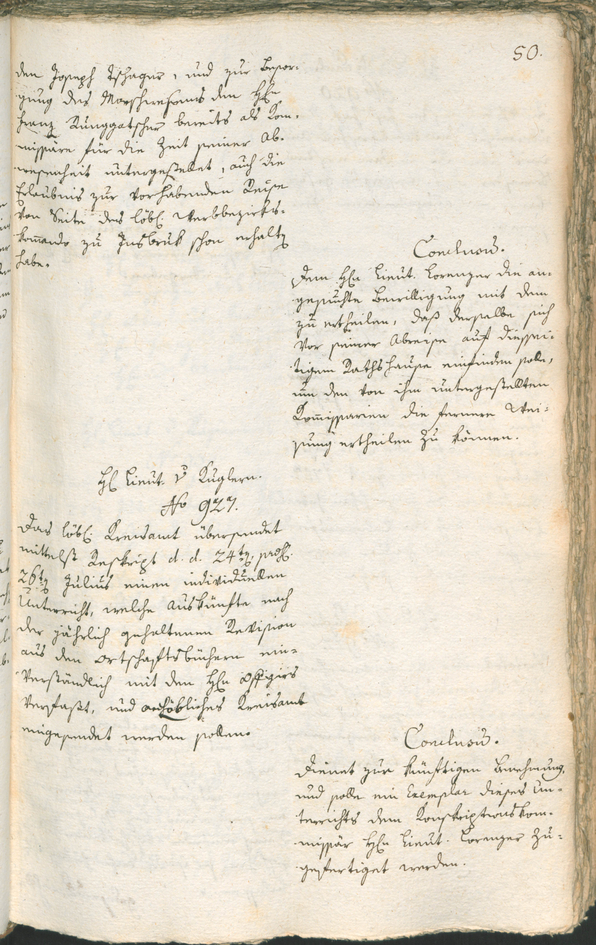 50.
den Joseph Tschager, und zur Besor-
gung des Marschwesens den H͠n
Franz Runggatscher bereits als Kom-
missäre für die Zeit seiner Ab-
wesenheit untergestellet, auch die
Erlaubnis zur vorhabenden Reise
von Seite des löbl. Werbbezirks-
kommando zu Insbruk schon erhalten
habe.
Conclusū.
Dem H͠n Lieut. Lorenzer die an-
gesuchte Bewilligung mit dem
zu ertheilen, daß derselbe sich
vor seiner Abreise auf diessei-
tigem Rathshause einfinden solle,
um den von ihm untergestellten
Kom̄issarien die fernere Wei-
sung ertheilen zu können.
H͠ Lieut. v Kuglern.
No 927.
Das löbl. Kreisamt übersendet
mittelst Reskript d. d. 24ten, præs.
26ten Julius einen individuellen
Unterricht, welche Auskünfte nach
der jährlich gehaltenen Revision
aus den Ortschaftsbüchern ein-
verständlich mit den H͠n Offizirs
verfaßt, und an löbliches Kreisamt
eingesendet werden sollen.
Conclusū.
Dienet zur künftigen Benehmung,
und solle ein Exemplar dieses Un-
terrichts dem Konskriptionskom-
missär H͠n Lieut. Lorenzer zu-
gefertiget werden.